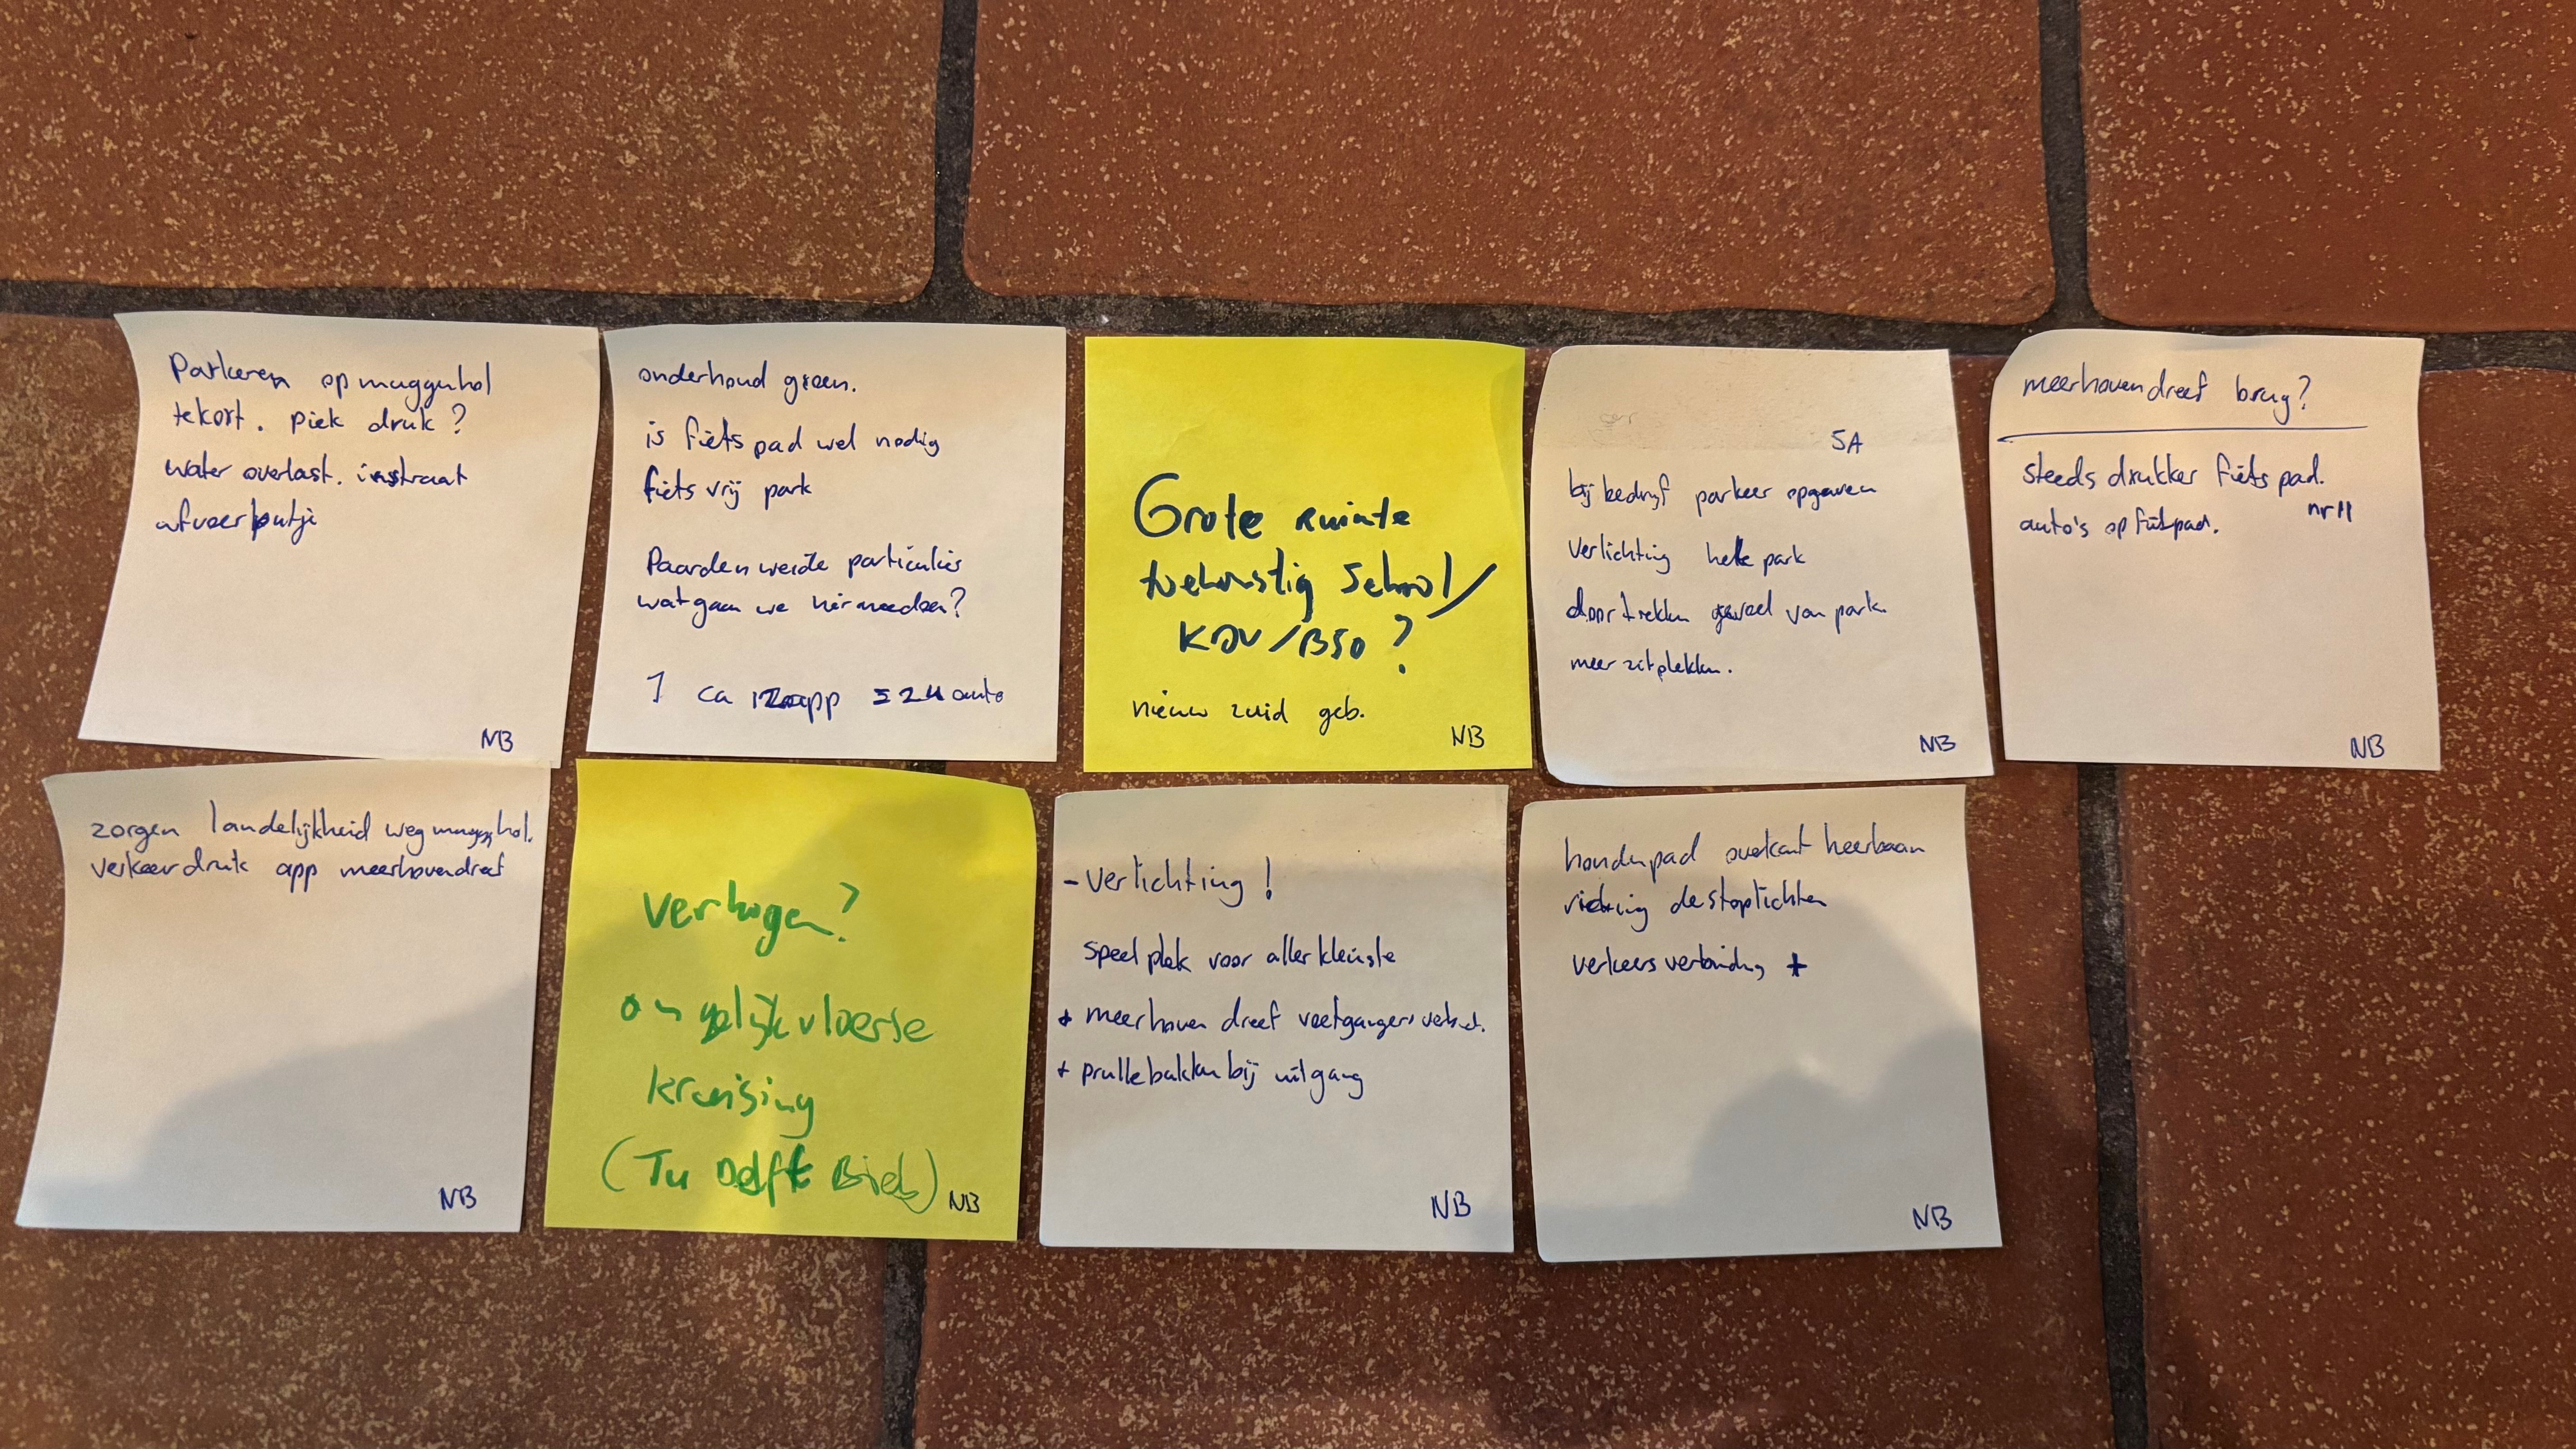 Parkeren op muggenhol
tekort. piek druk?
water overlast. in straat
afvoerputje
NB
onderhoud groen.
is fietspad wel nodig
fiets vrij park
Paardenweide particulier
wat gaan we hiermee doen?
1 ca 12 app = 24 auto
Grote ruimte
toekomstig School/
KDV/BSO?
nieuw zuid geb.
NB
5A
bij bedrijf parkeer opgaven
verlichting hele park
doortrekken gevoel van park.
meer zitplekken.
NB
meerhovendreef brug?
steeds drukker fietspad.
nr 11
auto's op fietspad.
NB
zorgen landelijkheid weg muggenhol.
verkeerdruk app meerhovendreef
NB
Verhogen?
ongelijkvloerse
kruising
(TU Delft Bieb)
NB
- Verlichting!
speel plek voor aller kleinste
+ meerhoven dreef voetgangers
+ prullebakken bij uitgang
NB
hondenpad overkant heerbaan
richting de stoplichten
verkeersverbinding +
NB